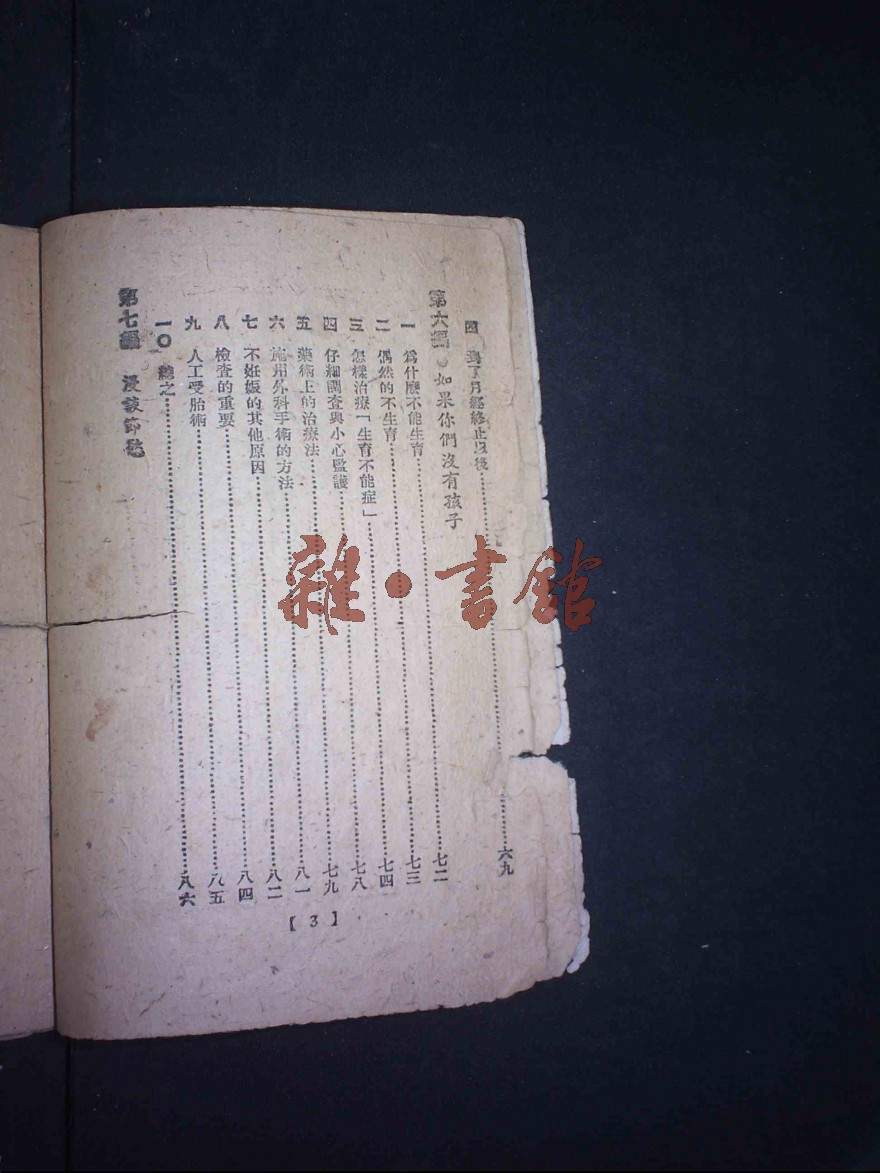 四 到了月經終止以後……六九
第六編 如果你們沒有孩子
一 爲什麼不能生育……七二
二 偶然的不生育……七三
三 怎樣治療「生育不能症」……七四
四 仔細調查與小心監護……七八
五 藥術上的治療法……七九
六 施用外科手術的方法……八一
七 不妊娠的其他原因……八二
八 檢查的重要……八四
九 人工受胎術……八五
一〇 總之……八六
第七編 漫談節慾
【3】
雜·書館